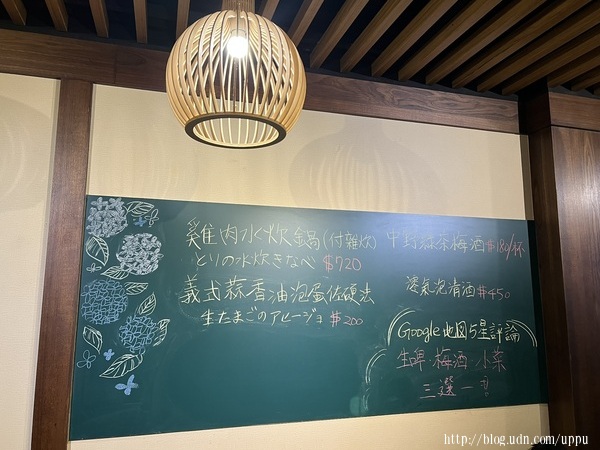 雞肉水炊鍋(付雜炊)
とりの水炊きなべ $720
義式蒜香油泡蛋佐碩法
生たまごのアヒージョ $200
中野綠茶梅酒$180/杯
氣泡清酒$450
Google地図5星評論
生啤·梅酒·小菜
三選一
http://blog.udn.com/uppu